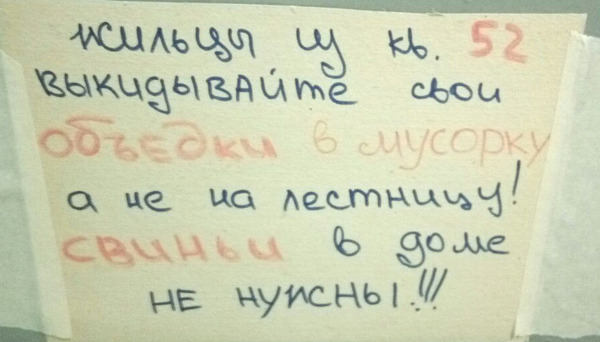 жильцы из кв. 52
выкидывайте свои
объедки в мусорку
а не на лестницу!
свиньи в доме
не нужны!!!